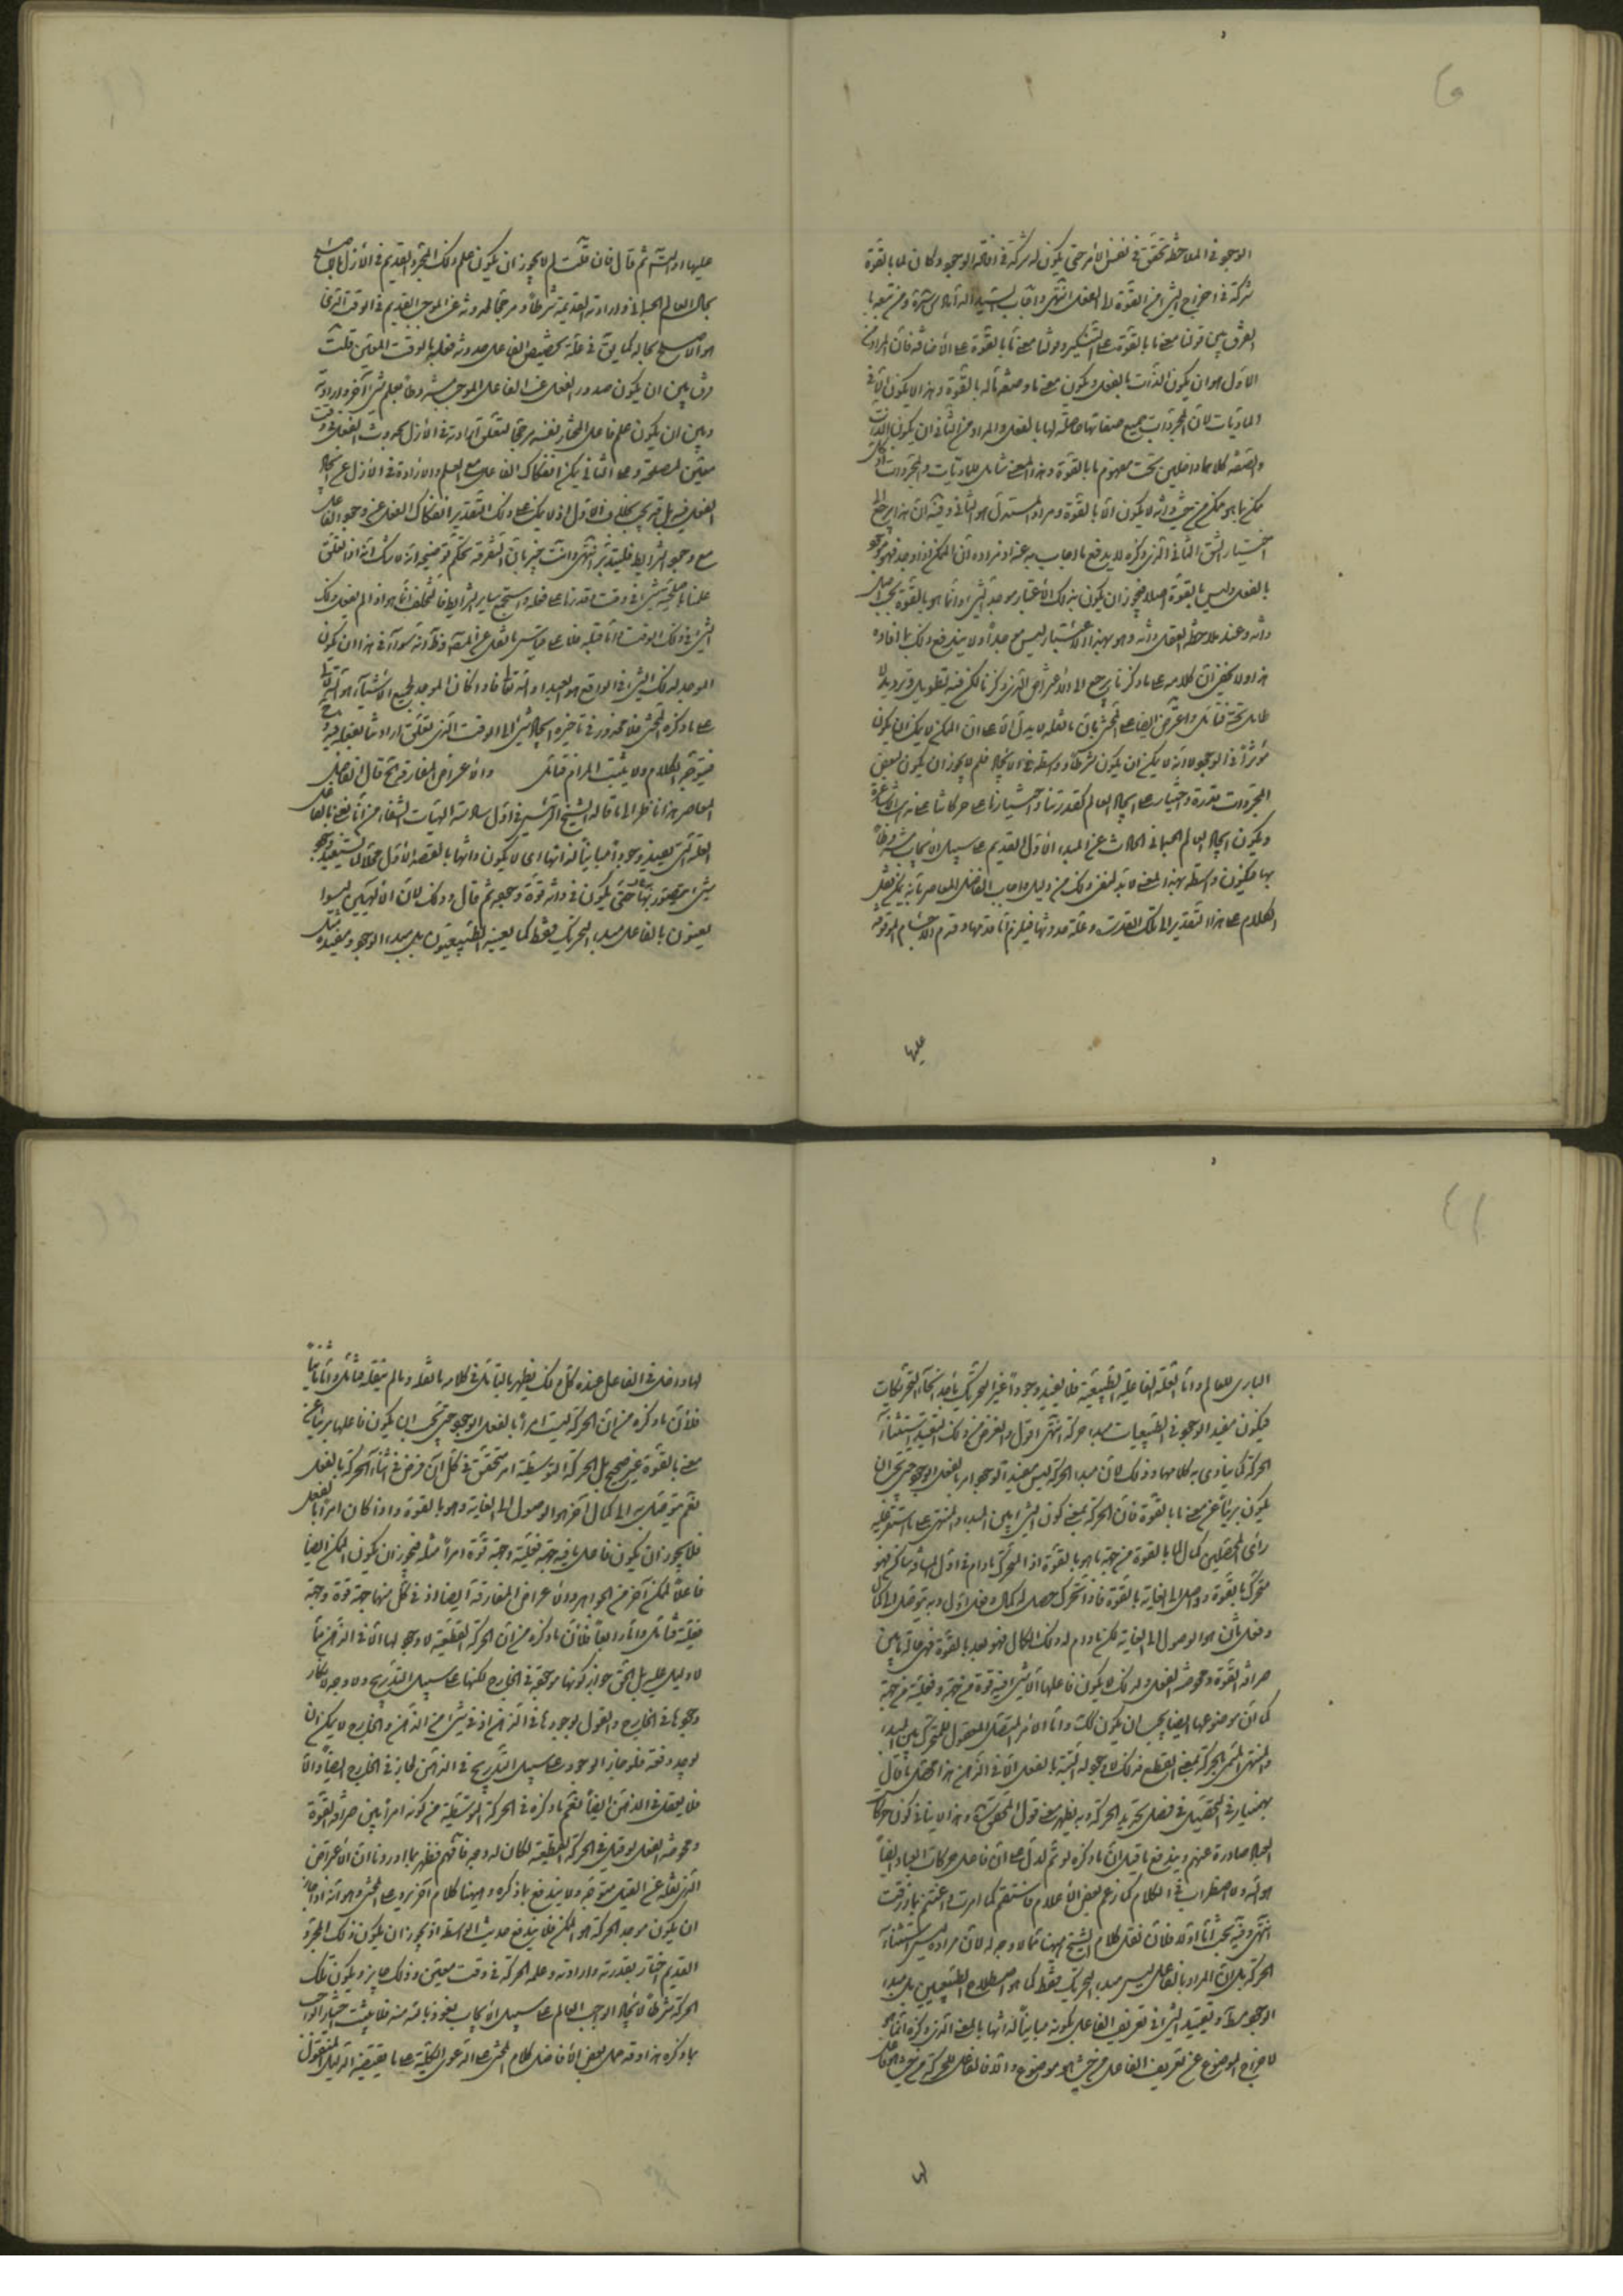 الوجود في الملاحظة تحقق في نفس الامر حتى يكون له شركة في افاضة الوجود وكان لما بالقوة
شركة في اخراج الشيء من القوة الى الفعل انتهى واجاب السيد
الفرق بين قولنا معنى ما بالقوة على التنكير وقولنا معنى ما بالقوة على الاضافة فان المراد من
الاول هو ان يكون الذات بالفعل ويكون معنى ما وصفة ما له بالقوة وهذا لا يكون الا في
الماديات لان المجردات جميع صفاتها حاصلة لها بالفعل والمراد من الثاني ان يكون الذات
والصفة كلاهما داخلين تحت مفهوم ما بالقوة وهذا المعنى شامل للماديات والمجردات اذ كل
ممكن بما هو ممكن من حيث ذاته لا يكون الا بالقوة ومراد المستدل هو الثاني وفيه ان هذا يرجع الى
اختيار الشق الثاني الذي ذكره فلا يدفع ما اجاب به عنه اذ مراده ان الممكن اذا وجد فهو موجود
بالفعل وليس بالقوة اصلا فيجوز ان يكون بذلك الاعتبار موجد الشيء وانما هو بالقوة بحسب اصل
ذاته وعند ملاحظة العقل ذاته وهو بهذا الاعتبار ليس موجدا ولا يندفع ذلك بما افاده
هذا ولا يخفى ان كلامه على ما ذكرنا يرجع الى الاعتراض الذي ذكرنا لكن فيه تطويل وترديد لا
طايل تحته فتأمل واعترض ايضا على المحشي بان ما نقله لا يدل الا على ان الممكن لا يمكن ان يكون
مؤثرا في الوجود لا انه لا يمكن ان يكون شرطا وواسطة في الايجاد فلم لا يجوز ان يكون لبعض
المجردات قدرة واختيار على ايجاد العالم كقدرتنا واختيارنا على حركاتنا عند الاشاعرة
ويكون ايجاد العالم الجسماني الحادث عن المبدء الاول القديم على سبيل الايجاب مشروطا
بها فيكون واسطة بهذا المعنى لا بد لنفي ذلك من دليل واجاب الفاضل المعاصر بانه يمكن نقل
الكلام على هذا التقدير الى تلك القدرة وعلة حدوثها فيلزم اما قدمها وقدم الاجسام الموقوفة
عليها
عليها او التس ثم قال فان قلت لم لا يجوز ان يكون علم ذلك المجرد القديم في الازل بالاصلح
بحال العالم الجسماني وارادته القديمة شرطا ومرجحا لحدوثه عن الموجب القديم في الوقت الذي
هو الاصلح بحاله كما يق في علة تخصيص الفاعل حدوث فعله بالوقت المعين قلت
فرق بين ان يكون صدور الفعل عن الفاعل الموجب مشروطا بعلم شيء آخر وارادته
وبين ان يكون علم فاعل المختار بنفسه مرجحا لتعلق ارادته في الازل بحدوث الفعل في وقت
معين لمصلحة وعلى الثاني يمكن انفكاك الفاعل مع العلم والارادة في الازل عن ايجاد
الفعل فيه بل قد يجب بخلاف الاول اذ لا يمكن على ذلك التقدير انفكاك الفعل عن وجود الفاعل
مع وجود الشرايط فليتدبر انتهى وانت خبير بان التفرقة تحكم توضيحه انه لا شك انه اذا تعلق
علمنا باصلحية شيء في وقت ما قدرنا على فعله واستجمع ساير الشرايط فالتخلف انما هو اذا لم يفعل ذلك
الشيء في ذلك الوقت واما قبله فلا على قياس ما نقل عن المص وظ انه سواء في هذا ان يكون
الموجد لذلك الشيء في الواقع هو العبد او الله تعالى فاذا كان الموجد لجميع الاشياء هو الله تعالى
على ما ذكره المحشي فلا محذور في تأخيره ايجاد شيء الى الوقت الذي تعلق ارادتنا بفعله فيه
فيتوجه الكلام ولا يثبت المرام فتأمل والاعراض المفارقة الخ قال الفاضل
المعاصر هذا ناظر الى ما قاله الشيخ الرئيس في اول سادسة الهيات الشفا من انا نعني بالفاعل
العلة التي تفيد وجودا مباينا لذاتها اي لا يكون ذاتها بالقصد الاول محلا لما تستفيد منه وجود
شيء يتصور بها حتى يكون في ذاته قوة وجوده ثم قال وذلك لان الالهيين ليسوا
يعنون بالفاعل مبدء التحريك فقط كما يعنيه الطبيعيون بل مبدء الوجود ومفيده مثل
الباري للعالم واما العلة الفاعلية الطبيعية فلا تفيد وجودا غير التحريك باحد انحاء التحريكات
فيكون مفيد الوجود في الطبيعيات مبدء حركة انتهى اقول والغرض من ذلك التقييد استثناء
الحركة كما ينادي به كلامهما وذلك لان مبدء الحركة ليس مفيدا لوجود امر بالفعل الوجود حتى يجب ان
يكون بريئا عن معنى ما بالقوة فان الحركة بمعنى كون الشيء بين المبدء والمنتهى على ما استقر عليه
رأي المحصلين كمال لما بالقوة من جهة ما هو بالقوة اذ المتحرك ما دام في اول المسافة ساكن فهو
متحرك بالقوة وواصل الى الغاية بالقوة فاذا تحرك حصل له كمال وفعل اول وبه يتوصل الى كمال
وفعل ثان هو الوصول الى الغاية لكن ما دام له ذلك الكمال فهو بعد بالقوة فهي حالة بين
صرافة القوة ومحوضة الفعل ولذلك لا يكون فاعلها الا شيء فيه قوة من جهة وفعلية من جهة
كما ان موضوعها ايضا يجب ان يكون كذلك واما الامر المتصل المعقول للمتحرك بين المبدء
والمنتهى المسمى بالحركة بمعنى القطع فذلك لا وجود له البتة بالفعل الا في الذهن هذا محصل ما قال
بهمنيار في التحصيل في فصل تحديد الحركة وبه يظهر معنى قول المحقق وهذا لا ينافي كون حركات
العباد صادرة عنهم ويندفع ما قيل ان ما ذكره لو تم لدل على ان فاعل حركات العباد ايضا
هو الله ولا اضطراب في الكلام كما زعم بعض الاعلام فاستقم كما امرت واغتنم بما وفقت
انتهى وفيه بحث اما اولا فلان نقل كلام الشيخ ههنا مما لا وجه له لان مراده ليس استثناء
الحركة بل ان المراد بالفاعل ليس مبدء التحريك فقط كما هو اصطلاح الطبيعيين بل مبدء
الوجود مط وتقييد الشيخ في تعريف الفاعل بكونه مباينا لذاتها بالمعنى الذي ذكره انما هو
لاخراج الموضوع عن تعريف الفاعل من حيث هو موضوع والا فالفاعل للحركة من حيث هو فاعل
لها
لها داخل في الفاعل عنده كل ذلك يظهر بالتأمل في كلامه ما نقله وما لم ينقله فتأمل واما ثانيا
فلان ما ذكره من ان الحركة ليست امرا بالفعل الوجود حتى يجب ان يكون فاعلها بريئا عن
معنى ما بالقوة غير صحيح بل الحركة التوسطية امر متحقق في كل آن فرض في اثناء الحركة بالفعل
نعم يتوصل به الى كمال آخر هو الوصول الى الغاية وهو بالقوة واذا كان امرا بالفعل
فلا يجوز ان يكون فاعل ما فيه جهة فعلية وجهة قوة امرا مثله فيجوز ان يكون الممكن ايضا
فاعلا لممكن آخر من الجواهر والاعراض المفارقة ايضا اذ في كل منها جهة قوة وجهة
فعلية فتأمل واما رابعا فلان ما ذكره من ان الحركة القطعية لا وجود لها الا في الذهن مما
لا دليل عليه بل الحق جواز كونها موجودة في الخارج لكنها على سبيل التدريج ولا وجه لانكار
وجودها في الخارج والقول بوجودها في الذهن اذ في شيء من الذهن والخارج لا يمكن ان
توجد دفعة فلو جاز الوجود على سبيل التدريج في الذهن لجاز في الخارج ايضا والا
فلا يعقل في الذهن ايضا نعم ما ذكره في الحركة التوسطية من كونه امرا بين صرافة القوة
ومحوضة الفعل لو قيل في الحركة القطعية لكان له وجه فافهم فظهر بما اوردنا ان الاعتراض
الذي نقله عن القيل متوجه ولا يندفع بما ذكره وههنا كلام آخر يرد على المحشي وهو انه اذا جاز
ان يكون موجد الحركة هو الممكن فلا يندفع حديث الواسطة اذ يجوز ان يكون ذلك المجرد
القديم اختار بقدرته وارادته وعلمه الحركة في وقت معين وذلك جايز ويكون تلك
الحركة شرطا لايجاد الواجب العالم على سبيل الايجاب نعوذ بالله منه فلا يثبت اختيار الواجب
بما ذكره هذا وقد حمل بعض الافاضل كلام المحشي على الدعوى الكلية على ما يقتضيه الدليل المنقول